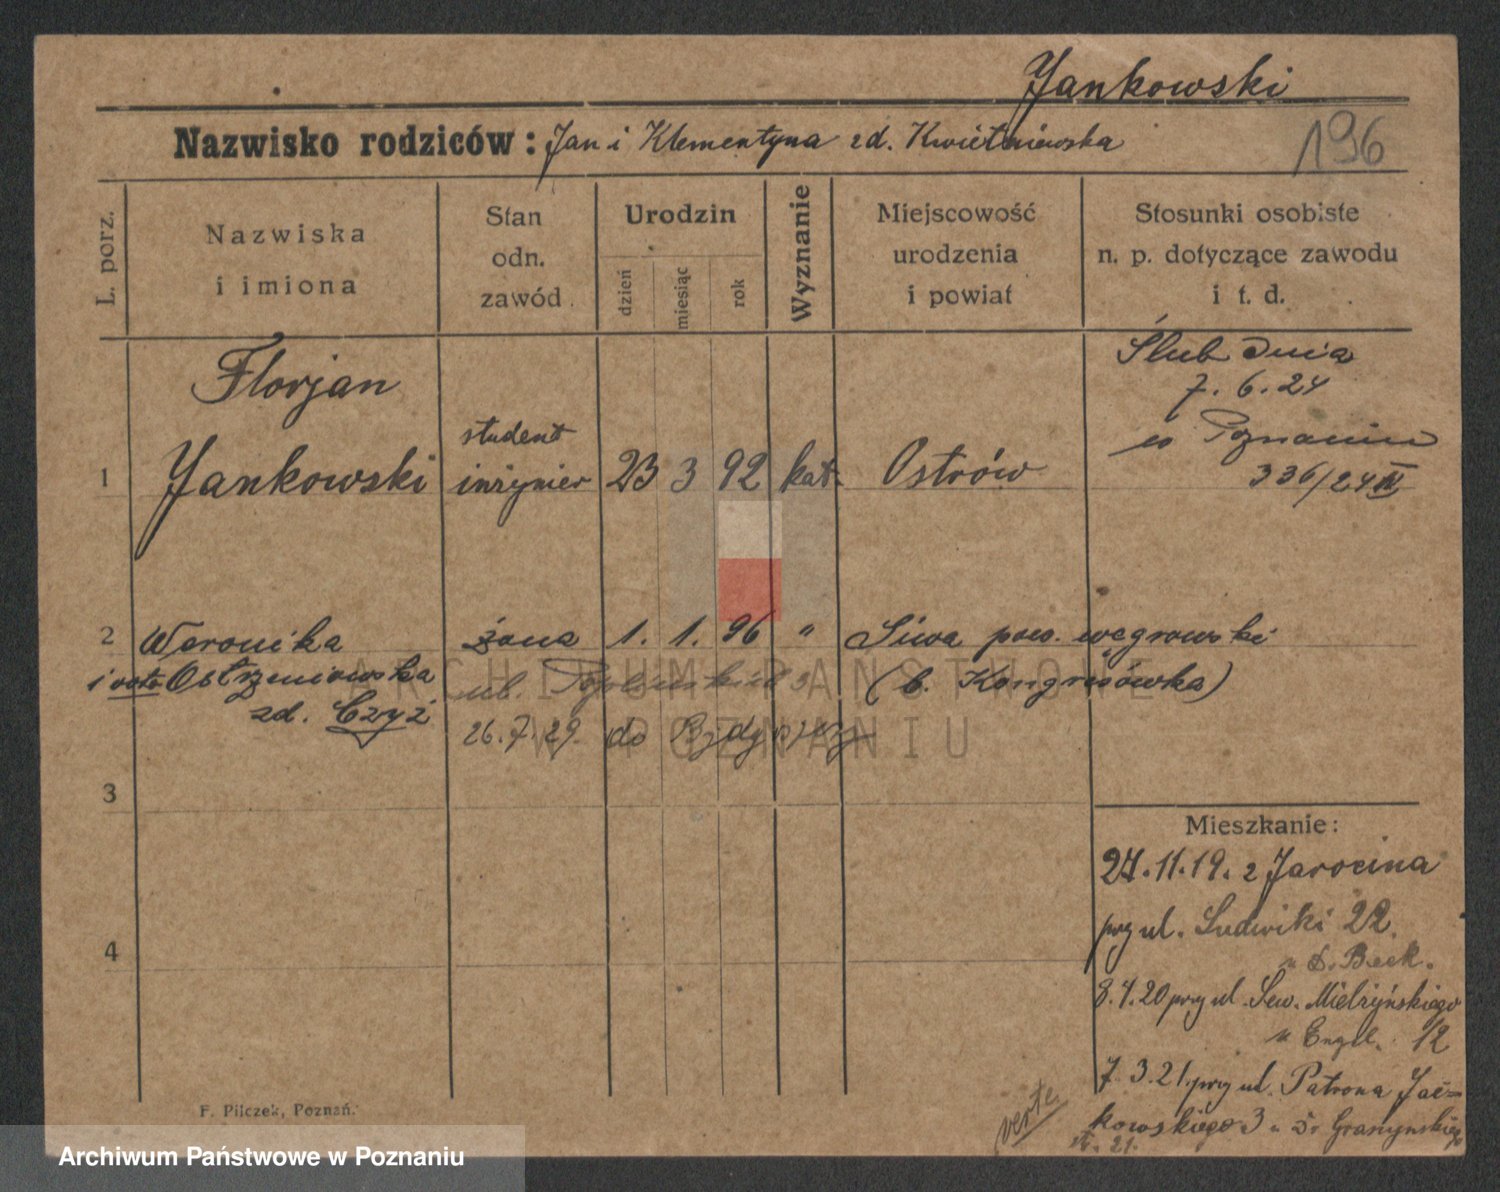 Jankowski
Nazwisko rodziców: Jan i Klementyna zd. Kwietniewska
196
L. porz.
Nazwiska
i imiona
Stan
odn.
zawód
Urodzin
dzień
miesiąc
rok
Wyznanie
Miejscowość
urodzenia
i powiat
Stosunki osobiste
n. p. dotyczące zawodu
i t. d.
1
Florjan
Jankowski
student
inżynier
23 3 92 kat. Ostrów
Ślub dnia
7. 6. 24
w Poznaniu
336/24 III
2 Weronika żona 1. 1. 96 " Siwa pow. węgrowski
i voto Ostrzeniowska ul. 3 (b. Kongresówka)
zd. Czyż 26. 7. 29 do
ARCHIWUM PAŃSTWOWE
W POZNANIU
3
4
Mieszkanie:
27. 11. 19. z Jarocina
przy ul. Ludwiki 22.
u Beek.
8. 4. 20 przy ul. Sew. Mielżyńskiego
u Engel. 12
7. 3. 21. przy ul. Patrona Jac=
kowskiego 3 u
verte
F. Pilczek, Poznań.
Archiwum Państwowe w Poznaniu